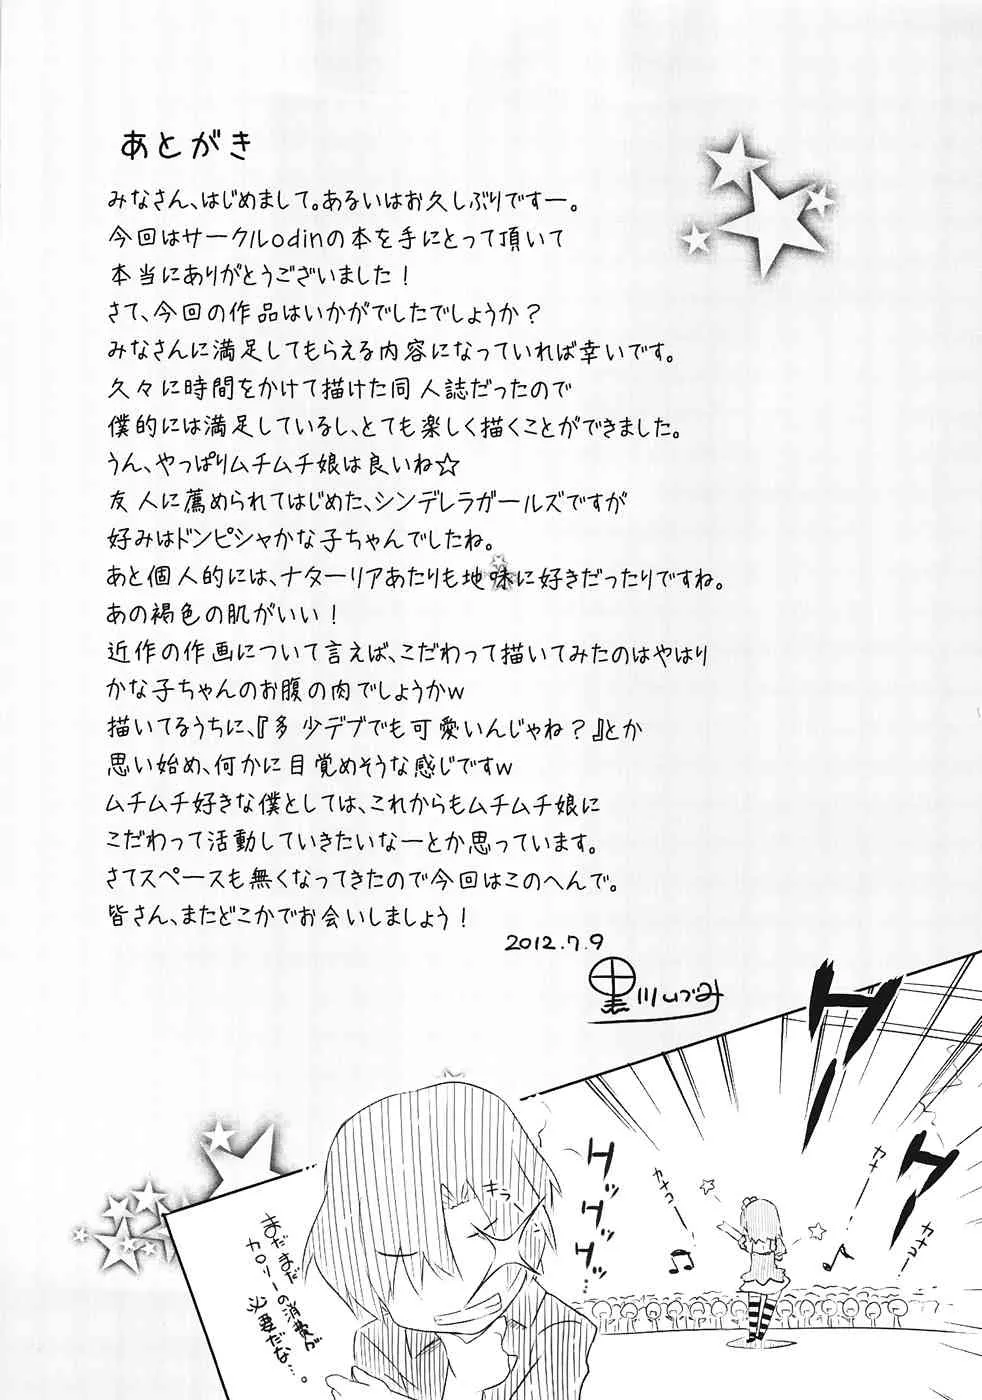 あとがき
みなさん、はじめまして。あるいはお久しぶりですー。
今回はサークルodinの本を手にとって頂いて
本当にありがとうございました！
さて、今回の作品はいかがでしたでしょうか？
みなさんに満足してもらえる内容になっていれば幸いです。
久々に時間をかけて描けた同人誌だったので
僕的には満足しているし、とても楽しく描くことができました。
うん、やっぱりムチムチ娘は良いね☆
友人に薦められてはじめた、シンデレラガールズですが
好みはドンピシャかな子ちゃんでしたね。
あと個人的には、ナターリアあたりも地味に好きだったりですね。
あの褐色の肌がいい！
近作の作画について言えば、こだわって描いてみたのはやはり
かな子ちゃんのお腹の肉でしょうかw
描いてるうちに、『多少デブでも可愛いんじゃね？』とか
思い始め、何かに目覚めそうな感じですw
ムチムチ好きな僕としては、これからもムチムチ娘に
こだわって活動していきたいなーとか思っています。
さてスペースも無くなってきたので今回はこのへんで。
皆さん、またどこかでお会いしましょう！
2012.7.9
黒川いづみ
ワー
ワー
ワッ
ワッ
カナコー
カナコー
カナコー
キラ
まだまだ
カロリーの消費が
必要だな…。